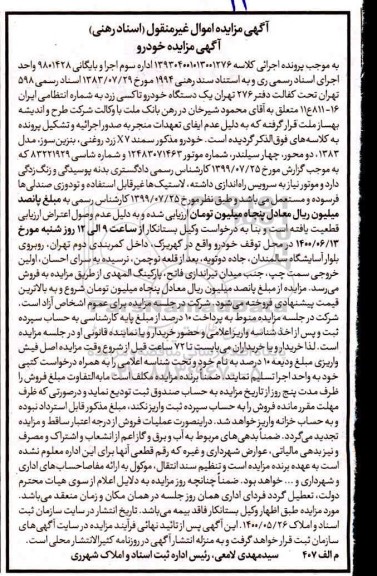 آگهی مزایده اموال غیرمنقول (اسناد رهنی)
آگهی مزایده خودرو
به موجب پرونده اجرائی کلاسه ۱۳۹۳۰۴۰۰۱۰۱۳۰۰۱۲۷۶ اداره سوم اجرا و بایگانی ۹۸۰۱۴۲۸ واحد
اجرای اسناد رسمی ری و به استناد سند رهنی ۱۹۹۴ مورخ ۱۳۸۳/۰۷/۲۹ اسناد رسمی ۵۹۸
تهران تحت کفالت دفتر ۲۷۶ تهران یک دستگاه خودرو تاکسی زرد به شماره انتظامی ایران
متعلق به آقای محمود شیرخان در رهن بانک ملت با وکالت شرکت طرح و اندیشه
بهساز ملت قرار گرفته که به دلیل عدم ایفای تعهدات منجر به صدور اجرائیه و تشکیل پرونده
به کلاسه های فوق الذکر گردیده است. خودرو مذکور سمند X7 زرد روغنی، بنزین سوز، مدل
۱۳۸۳، دو محور، چهار سیلندر، شماره موتور ۱۲۴۸۳۰۷۱۴۶۳ و شماره شاسی ۸۳۲۲۱۹۲۹ که
به موجب گزارش مورخ ۱۳۹۹/۰۷/۲۵ کارشناس رسمی دادگستری بدنه پوسیدگی و زنگ زدگی
دارد و موتور نیاز به سرویس راه اندازی داشته، لاستیک ها غیرقابل استفاده و تودوزی صندلی ها
فرسوده و مستعمل طبق نظر مورخ ۱۳۹۹/۰۷/۲۵ کارشناس رسمی به مبلغ پانصد
میلیون ریال معادل پنجاه میلیون تومان ارزیابی شده و به دلیل عدم وصول اعتراض ارزیابی
قطعیت یافته است. بنا به درخواست وکیل بستانکار از ساعت ۹ الی ۱۲ روز شنبه مورخ
۱۴۰۰/۰۶/۱۳ در محل توقف خودرو واقع در کهریزک، داخل کمربندی دوم تهران، روبروی
بلوار آسایشگاه سالمندان، جاده دوتویه، بعد از قلعه نوچمن، نرسیده به سرای احسان، اولین
خروجی سمت چپ، جنب میدان تیراندازی فاتح، پارکینگ الهمدی از طریق مزایده به فروش
می رسد. مزایده از مبلغ پانصد میلیون ریال معادل پنجاه میلیون تومان شروع و به بالاترین
قیمت پیشنهادی فروخته می شود. شرکت در جلسه مزایده برای عموم اشخاص آزاد است.
شرکت در جلسه مزایده منوط به پرداخت ۱۰ درصد از مبلغ پایه کارشناسی به حساب سپرده
ثبت و پس از اخذ شناسه واریز اعلامی و حضور خریدار یا نماینده قانونی او در جلسه مزایده
است. لذا خریدار یا خریداران می بایست تا ۷۲ ساعت قبل از شروع وقت مزایده اصل فیش
واریزی مبلغ ودیعه ۱۰ درصد به تاخیر و تحت شناسه اعلامی را به همراه درخواست کتبی
خود به واحد اجرا تسلیم نمایند. ضمنا برنده مزایده مکلف است مابه التفاوت مبلغ فروش را
ظرف مدت پنج روز از تاریخ مزایده به حساب صندوق ثبت تودیع نماید و درصورتی که ظرف
مهلت مقرر مانده فروش را به حساب سپرده ثبت واریز نکند، مبلغ مذکور قابل استرداد نبوده
و به حساب خزانه واریز خواهد شد. در اینصورت عملیات فروش از درجه اعتبار ساقط و مزایده
تجدید می گردد. ضمنا بدهی های مربوط به آب و برق و گاز اعم از انشعاب و اشتراک و مصرف
و نیز بدهی مالیاتی، عوارض شهرداری و غیره که رقم قطعی آنها برای این اداره معلوم نشده
است به عهده برنده مزایده است و تنظیم سند انتقال، موکول به ارائه مفاصاحساب های اداری
و شهرداری و ... خواهد بود. ضمنا چنانچه روز مزایده به دلایل اعلام از سوی هیات محترم
دولت، تعطیل گردد فردای اداری همان روز جلسه در همان مکان و زمان منعقد می باشد.
مورد مزایده طبق اظهار وکیل بستانکار فاقد بیمه می باشد. تاریخ انتشار در سایت سازمان ثبت
اسناد و املاک ۱۴۰۰/۰۵/۲۶. این آگهی پس از تائید نهائی فرآیند مزایده در سایت آگهی های
سازمان ثبت قرار خواهد گرفت و به منزله انتشار آگهی در روزنامه کثیرالانتشار محلی است.
م الف ۴۰۷ سیدمهدی لامعی، رئیس اداره ثبت اسناد و املاک شهرری